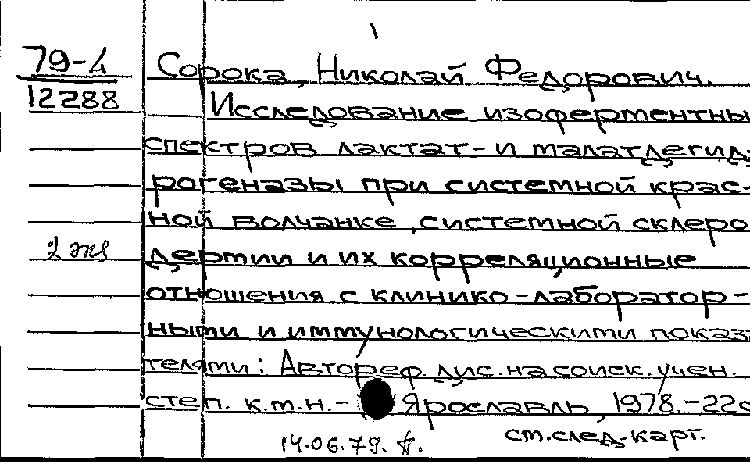 79-4
12288
Сорока, Николай Федорович.
Исследование изоферментны
спектров лактат- и малатдегид-
рогеназы при системной крас-
ной волчанке, системной склеро
2 экз
дермии и их корреляционные
отношения с клинико-лаборатор-
ными и иммунологическими показ
телями: Автореф. дис. на соиск. учен.
степ. к.м.н.- Ярославль, 1978.-22с
14.06.79.
см.след.карт.